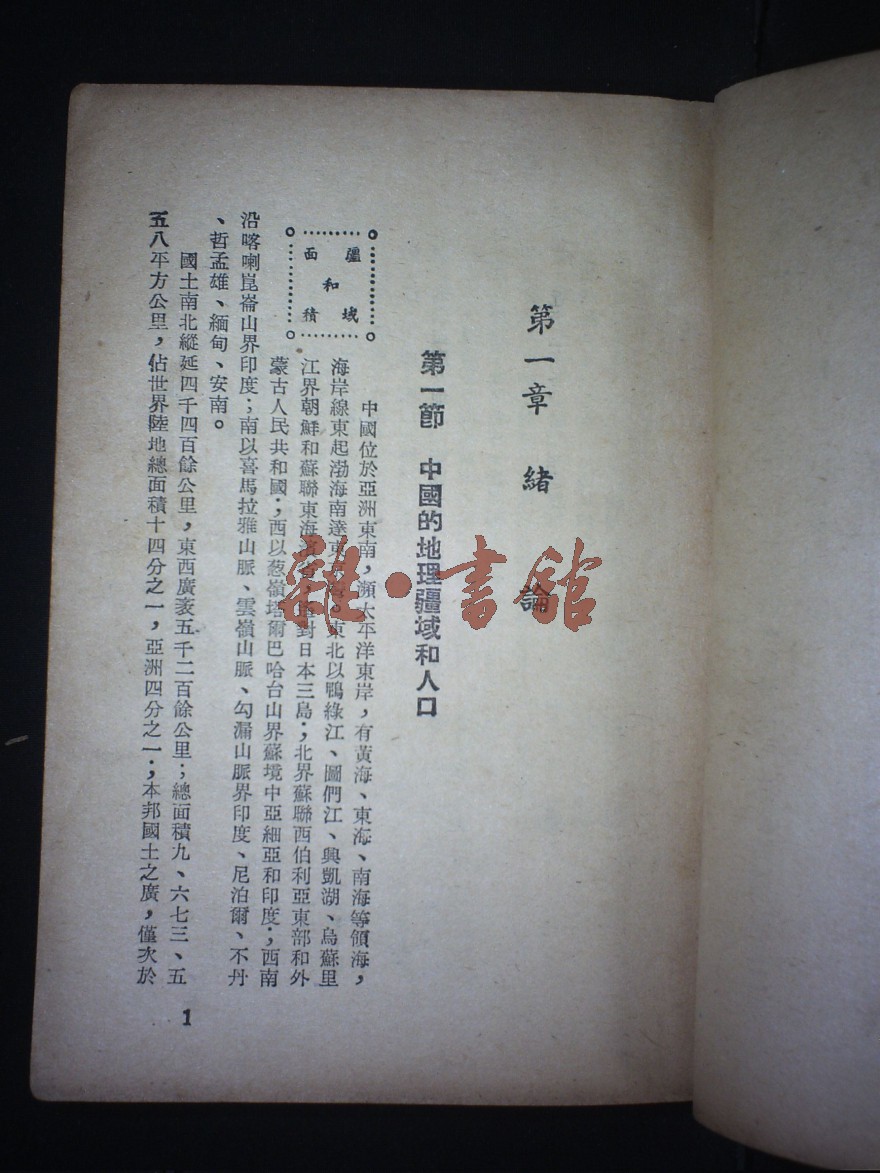 第一章 緒論
第一節 中國的地理疆域和人口
疆域
和
面積
中國位於亞洲東南，瀕太平洋東岸，有黃海、東海、南海等領海，
海岸線東起渤海南達東 東北以鴨綠江、圖們江、興凱湖、烏蘇里
江界朝鮮和蘇聯東海濱省， 對日本三島；北界蘇聯西伯利亞東部和外
蒙古人民共和國；西以葱嶺塔爾巴哈台山界蘇境中亞細亞和印度；西南
沿喀喇崑崙山界印度；南以喜馬拉雅山脈、雲嶺山脈、勾漏山脈界印度、尼泊爾、不丹
、哲孟雄、緬甸、安南。
國土南北縱延四千四百餘公里，東西廣袤五千二百餘公里；總面積九、六七三、五
五八平方公里，佔世界陸地總面積十四分之一，亞洲四分之一；本邦國土之廣，僅次於
1
雜·書館